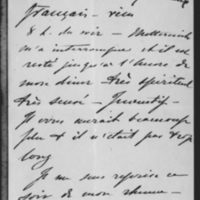 français – rien
8 h. du soir – Metternich
m'a interrompue et il est
resté jusqu'à l'heure de
mon diner très spirituel
très sensé –
Il vous aurait beaucoup
plu s'il n'était pas trop
long
Je me sens reprise ce
soir de mon rhume –